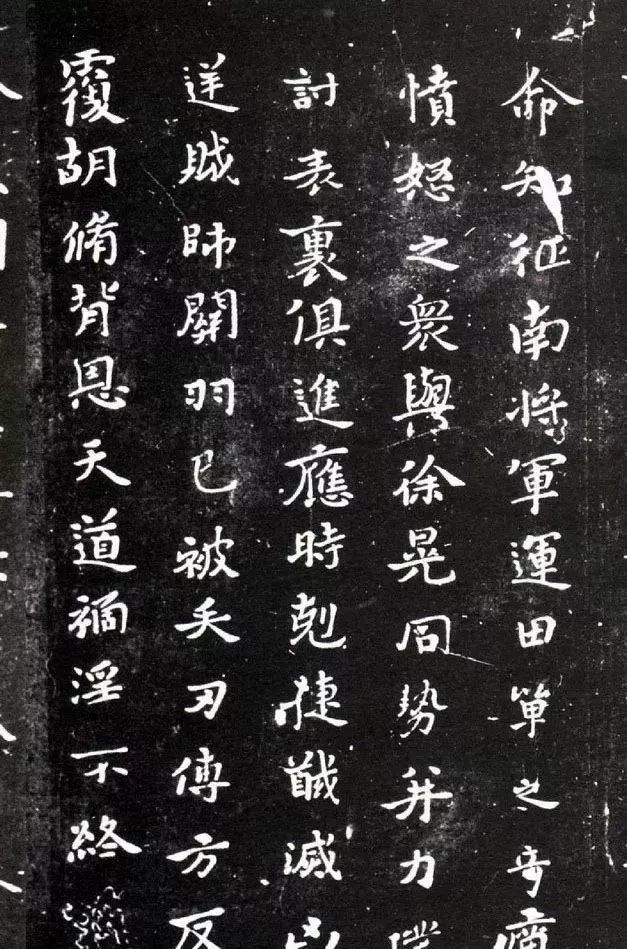 命知征南將軍運田單之奇厲
憤怒之眾與徐晃同勢并力
討表裏俱進應時剋捷馘滅凶
逆賊帥關羽已被矢刃傅方反
覆胡脩背恩天道禍淫不終